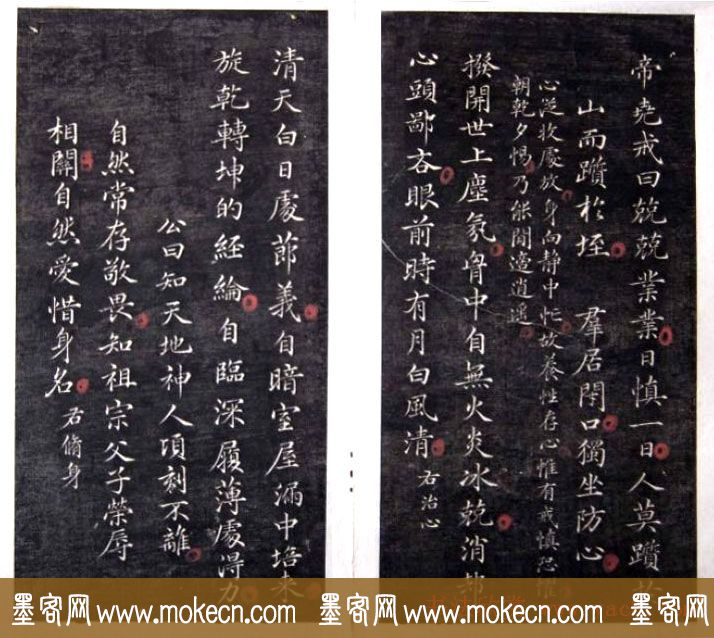 帝堯戒曰兢兢業業日慎一日人莫躓於
山而躓於垤 羣居閉口獨坐防心
心從收處放身向靜中忙故養性存心惟有戒慎恐懼
朝乾夕惕乃能閒適逍遥
撥開世上塵氛胷中自無火炎冰兢消却
心頭鄙吝眼前時有月白風清 右治心
清天白日處莭義自暗室屋漏中培来
旋乾轉坤的經綸自臨深履薄處得力
公曰知天地神人頃刻不離
自然常存敬畏知祖宗父子榮辱
相關自然愛惜身名 右脩身
墨客网 www.mokecn.com 墨客网 www.mokecn.com 墨客网